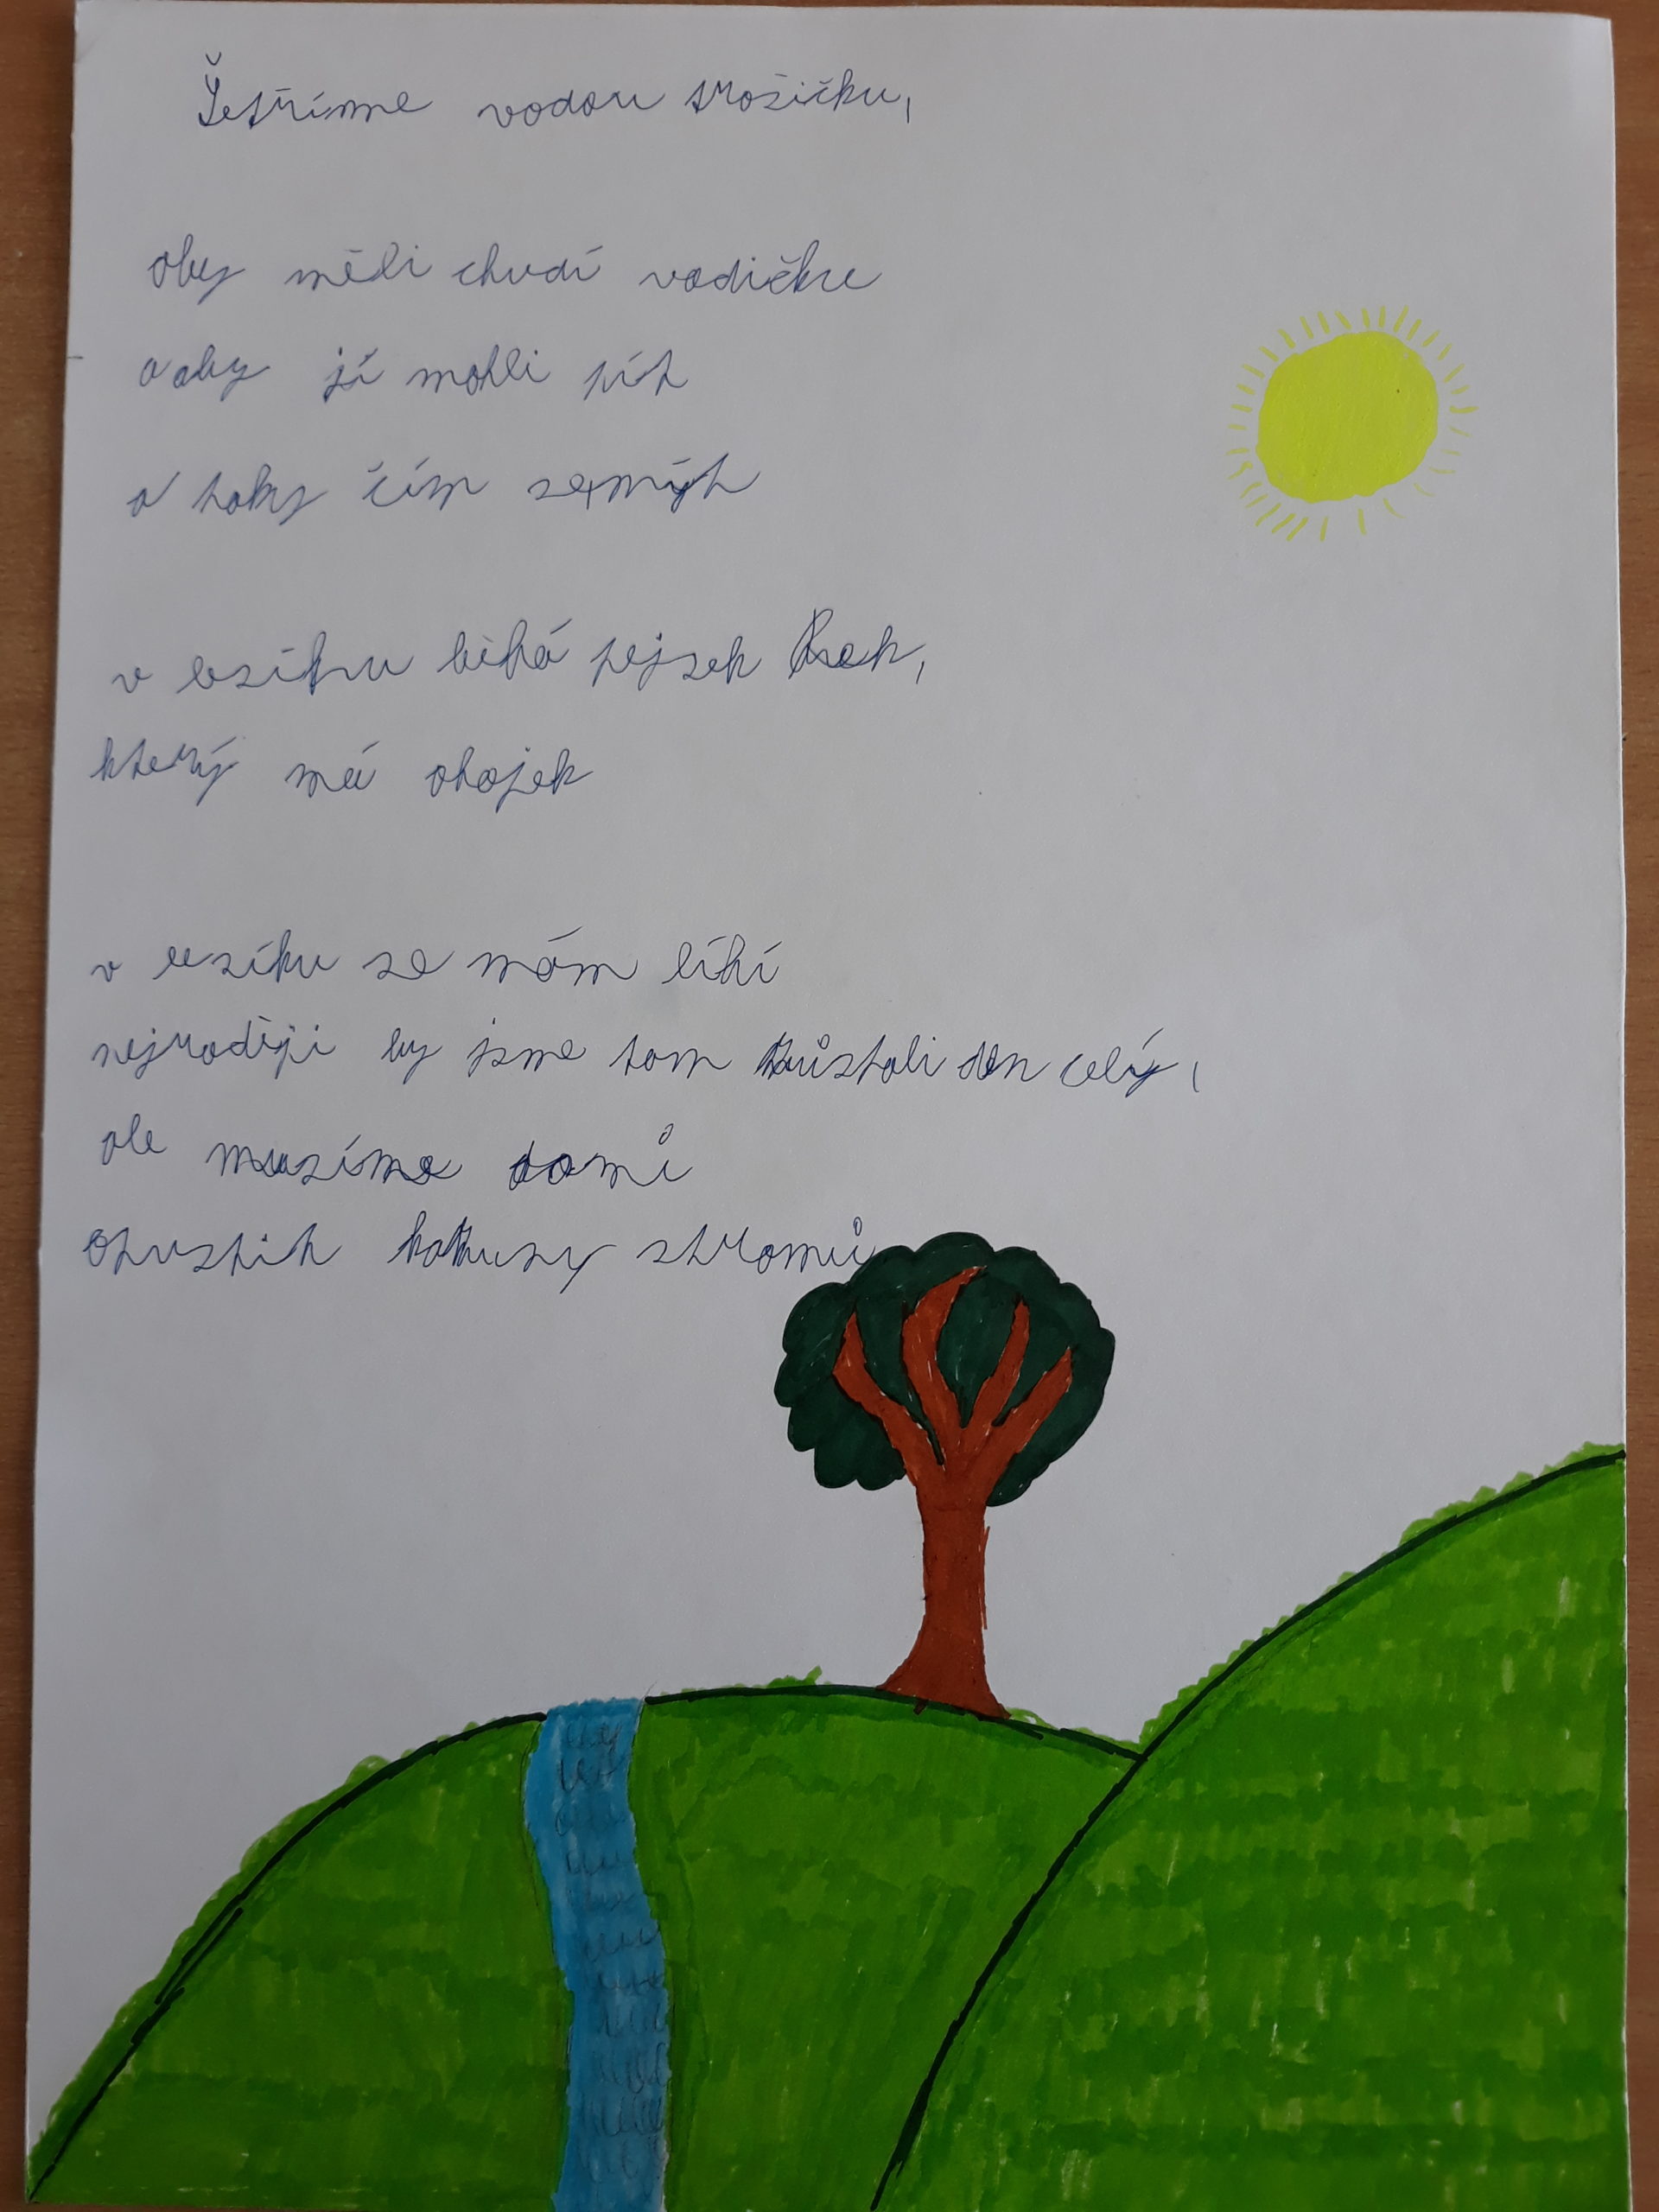 Šetříme vodou trošičku,
aby měli chudí vodičku
a aby jí mohli pít
a taky čím se mýt
v lesíku běhá pejsek Rek,
který má obojek
v lesíku se nám líbí
nejraději by jsme tam zůstali den celý,
ale musíme domů
Opustit koruny stromů